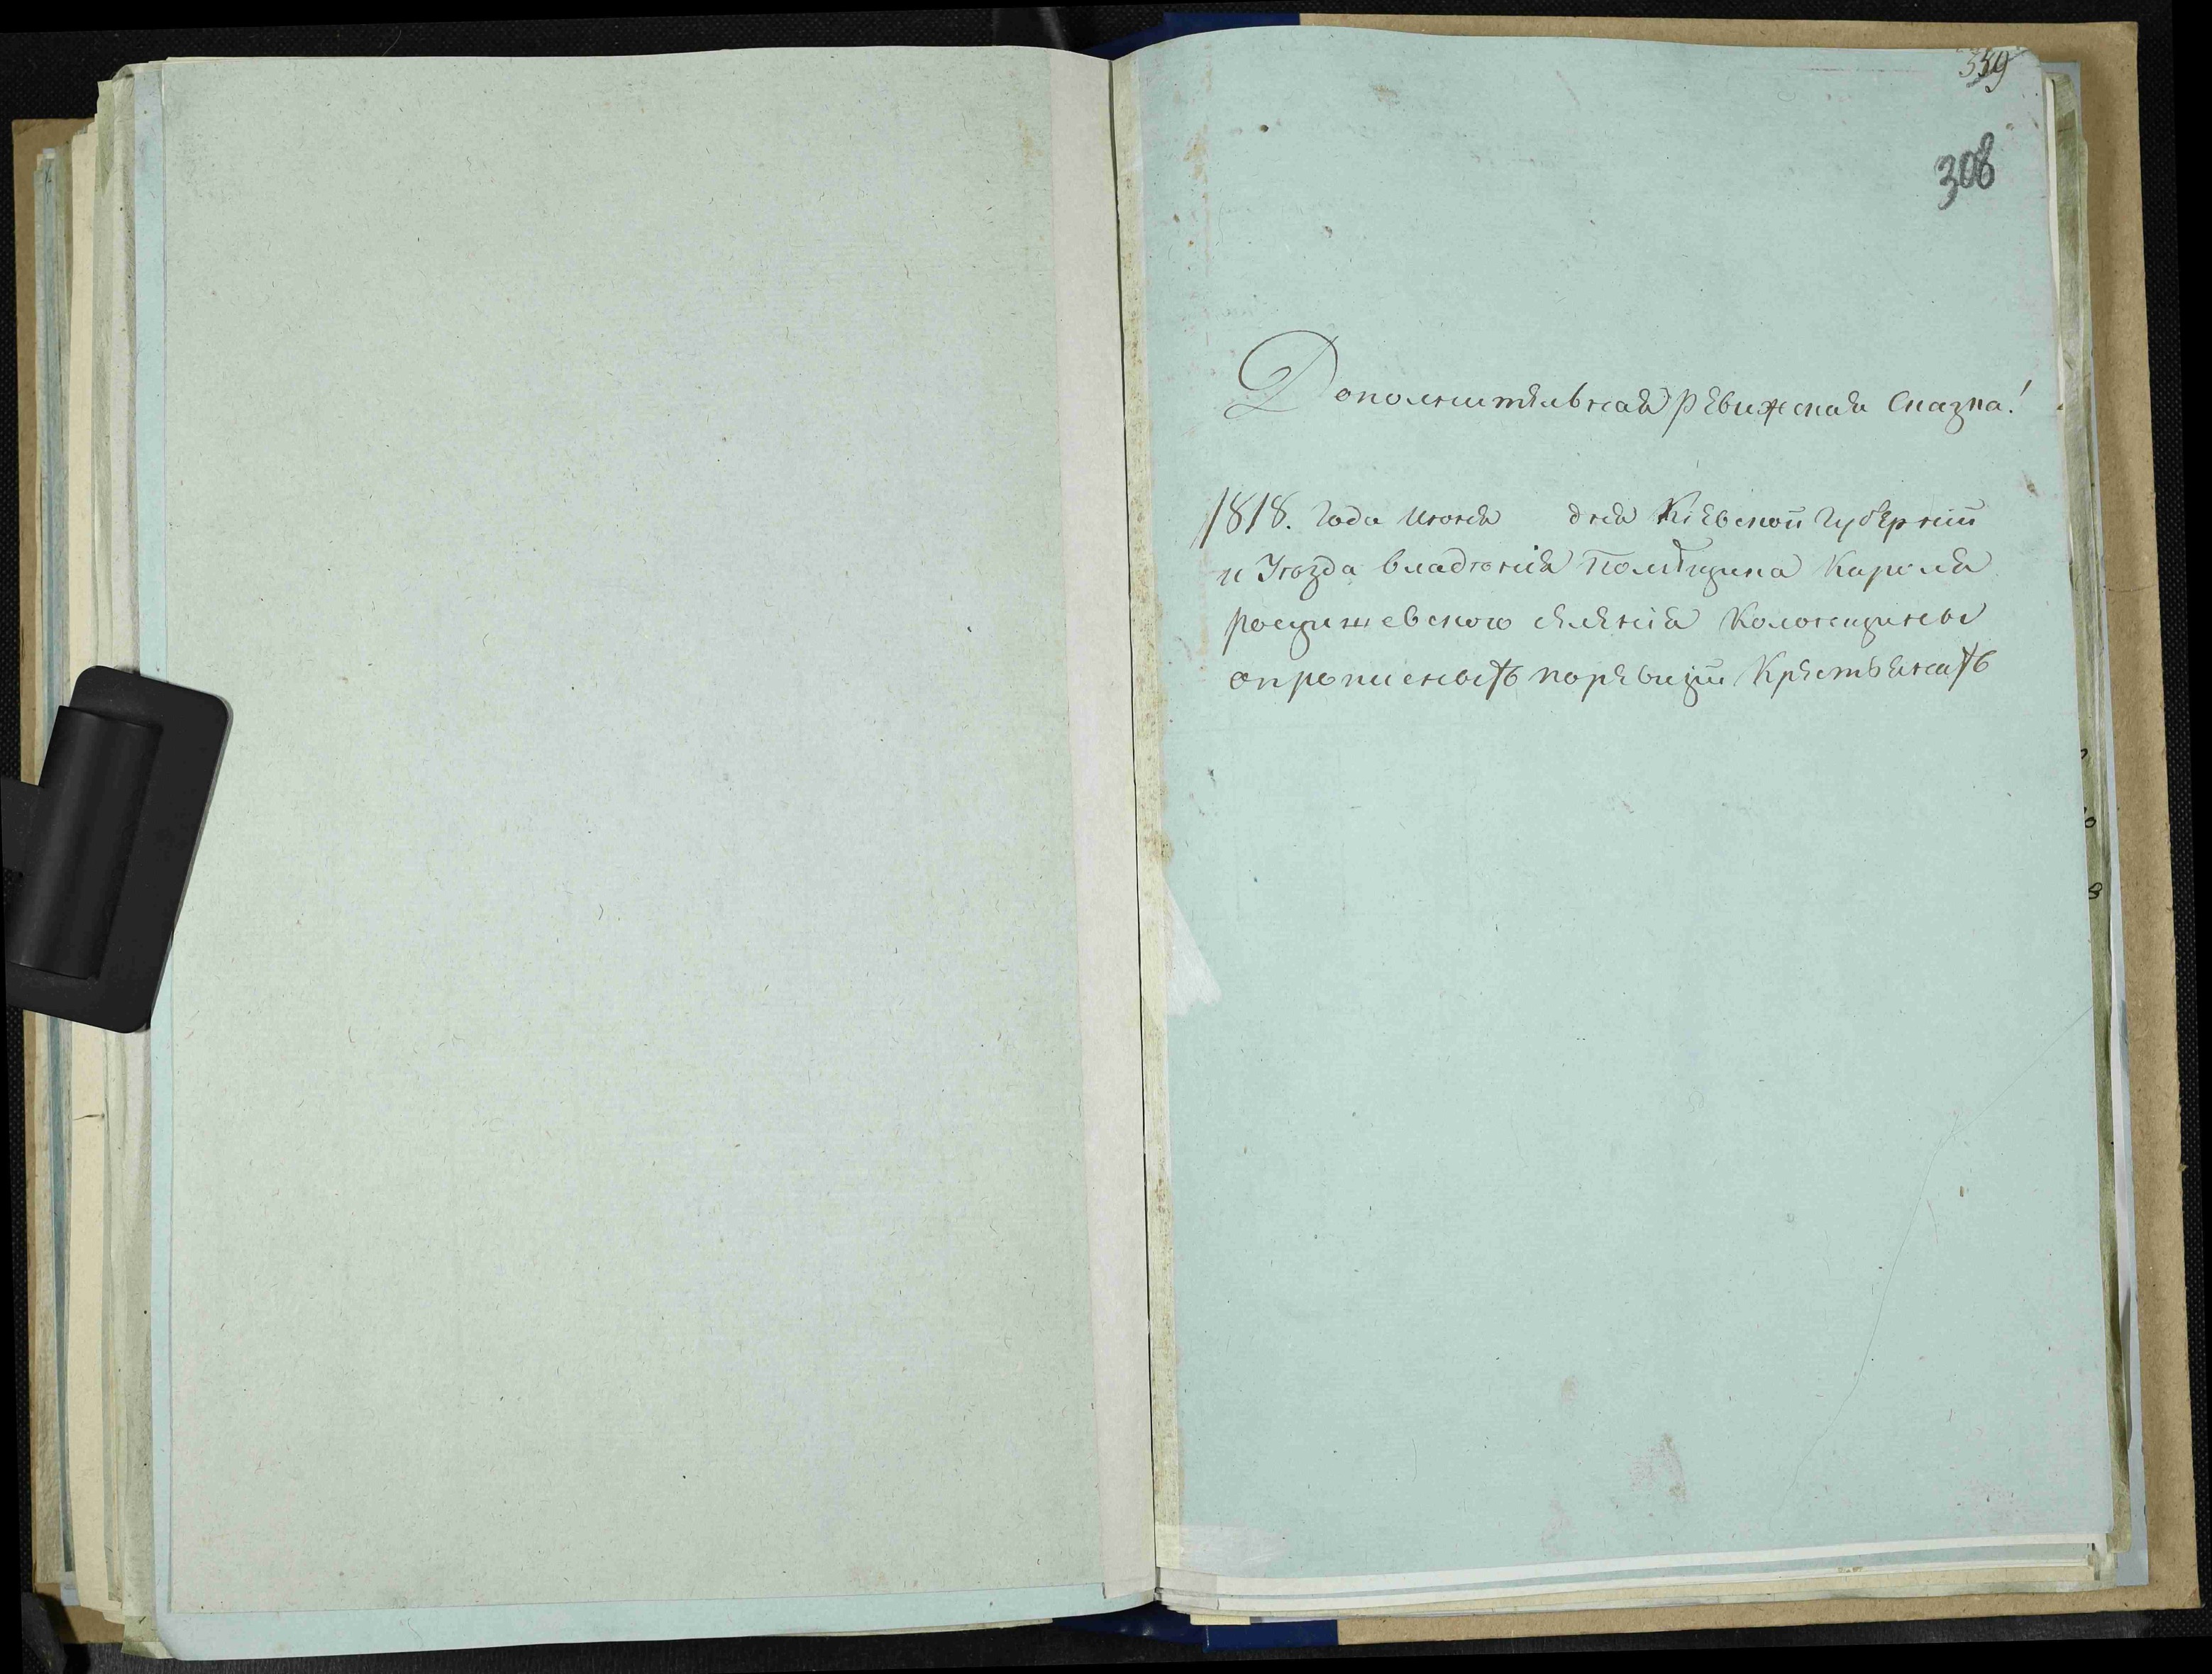 359
308
Дополнительная ревижская Сказка!
1818. Года Июня дня Кіевской Губерніи
и Уезда владенія Помещика Кароля
росцишевского селенія Колонщины
опрописных по ревизіи Крестьянах